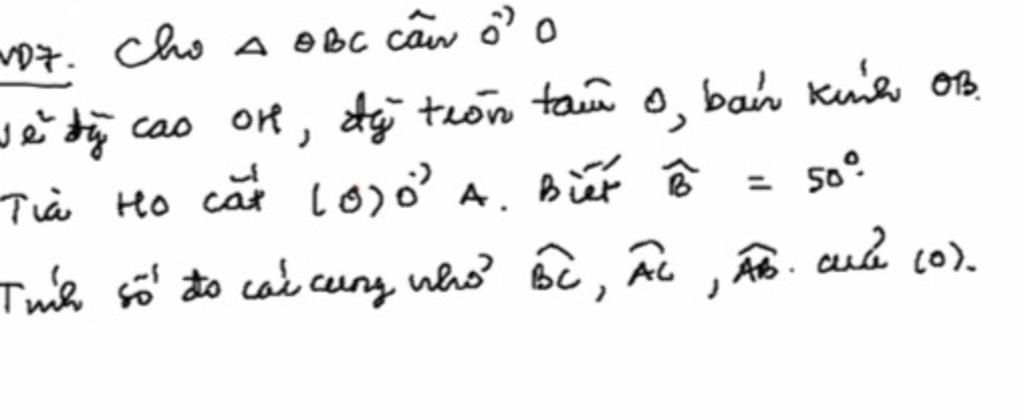 VD7. Cho Δ OBC cân ở O
Vẽ đg cao OH, đg tròn tâm O, bán kính OB.
Tia HO cắt (O) ở A. Biết B̂ = 50°.
Tính số đo các cung nhỏ B͡C, A͡C, A͡B. của (O).